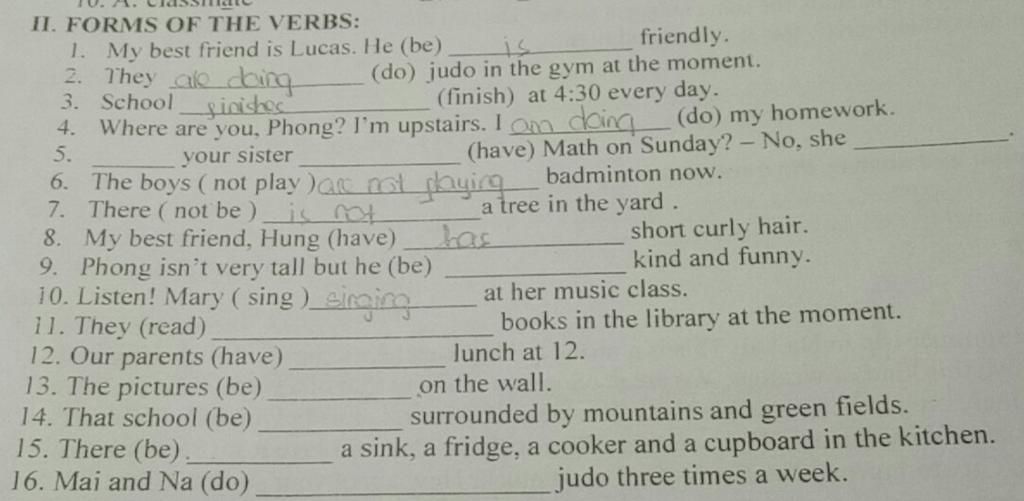 10. A. classmate
II. FORMS OF THE VERBS:
1. My best friend is Lucas. He (be) is friendly.
2. They are doing (do) judo in the gym at the moment.
3. School finishes (finish) at 4:30 every day.
4. Where are you, Phong? I'm upstairs. I am doing (do) my homework.
5. ________ your sister ____________ (have) Math on Sunday? – No, she ____________.
6. The boys ( not play ) are not playing badminton now.
7. There ( not be ) is not a tree in the yard .
8. My best friend, Hung (have) has short curly hair.
9. Phong isn't very tall but he (be) ______________ kind and funny.
10. Listen! Mary ( sing ) singing at her music class.
11. They (read) ______________________ books in the library at the moment.
12. Our parents (have) ____________ lunch at 12.
13. The pictures (be) ___________ on the wall.
14. That school (be) ___________ surrounded by mountains and green fields.
15. There (be) ___________ a sink, a fridge, a cooker and a cupboard in the kitchen.
16. Mai and Na (do) ______________________ judo three times a week.